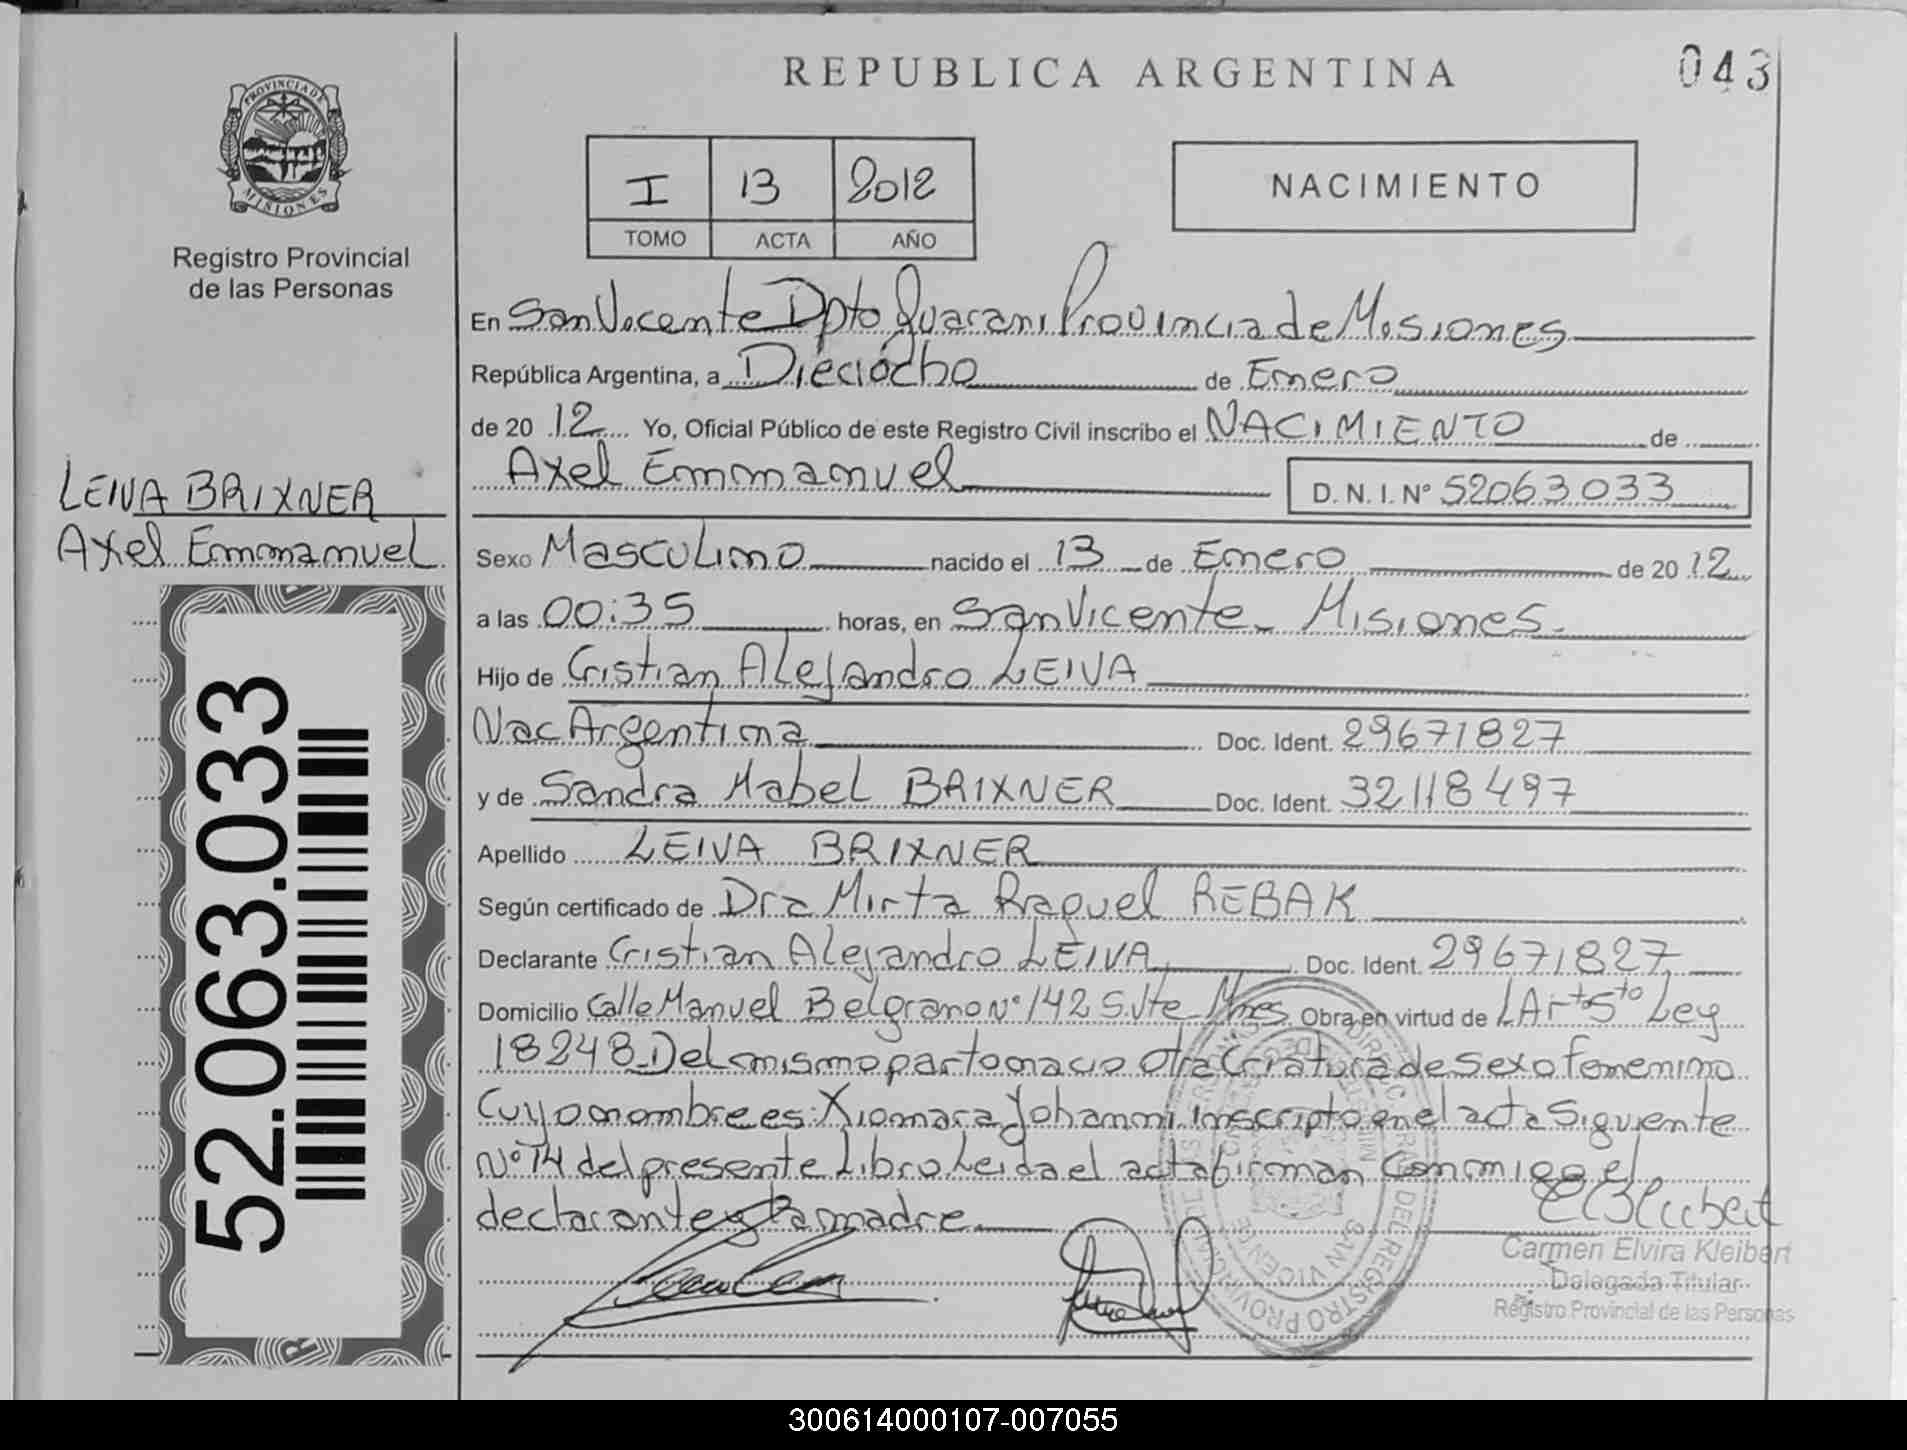 REPUBLICA ARGENTINA
043
PROVINCIA DE
MISIONES
Registro Provincial
de las Personas
I 13 2012
TOMO ACTA AÑO
NACIMIENTO
En San Vicente Dpto Guarani Provincia de Misiones
República Argentina, a Dieciocho de Enero
de 20 12 Yo, Oficial Público de este Registro Civil inscribo el NACIMIENTO de
Axel Emmanuel D. N. I. Nº 52063033
LEIVA BRIXNER
Axel Emmanuel
Sexo Masculino nacido el 13 de Enero de 20 12
a las 00:35 horas, en San Vicente - Misiones.
Hijo de Cristian Alejandro LEIVA
Nac Argentina Doc. Ident. 29671827
y de Sandra Mabel BRIXNER Doc. Ident. 32118497
Apellido LEIVA BRIXNER
Según certificado de Dra Mirta Raquel REBAK
Declarante Cristian Alejandro LEIVA Doc. Ident. 29671827
Domicilio Calle Manuel Belgrano Nº 142 S.Vte Mnes Obra en virtud de L Art 5to Ley
18248 - Del mismo parto nacio otra Criatura de sexo femenino
Cuyo nombre es: Xiomara Johanni inscripto en el acta siguiente
Nº 14 del presente Libro. Leida el acta firman conmigo el
declarante y la madre
52.063.033
Carmen Elvira Kleibert
Delegada Titular
Registro Provincial de las Personas
SAN VICENTE
300614000107-007055